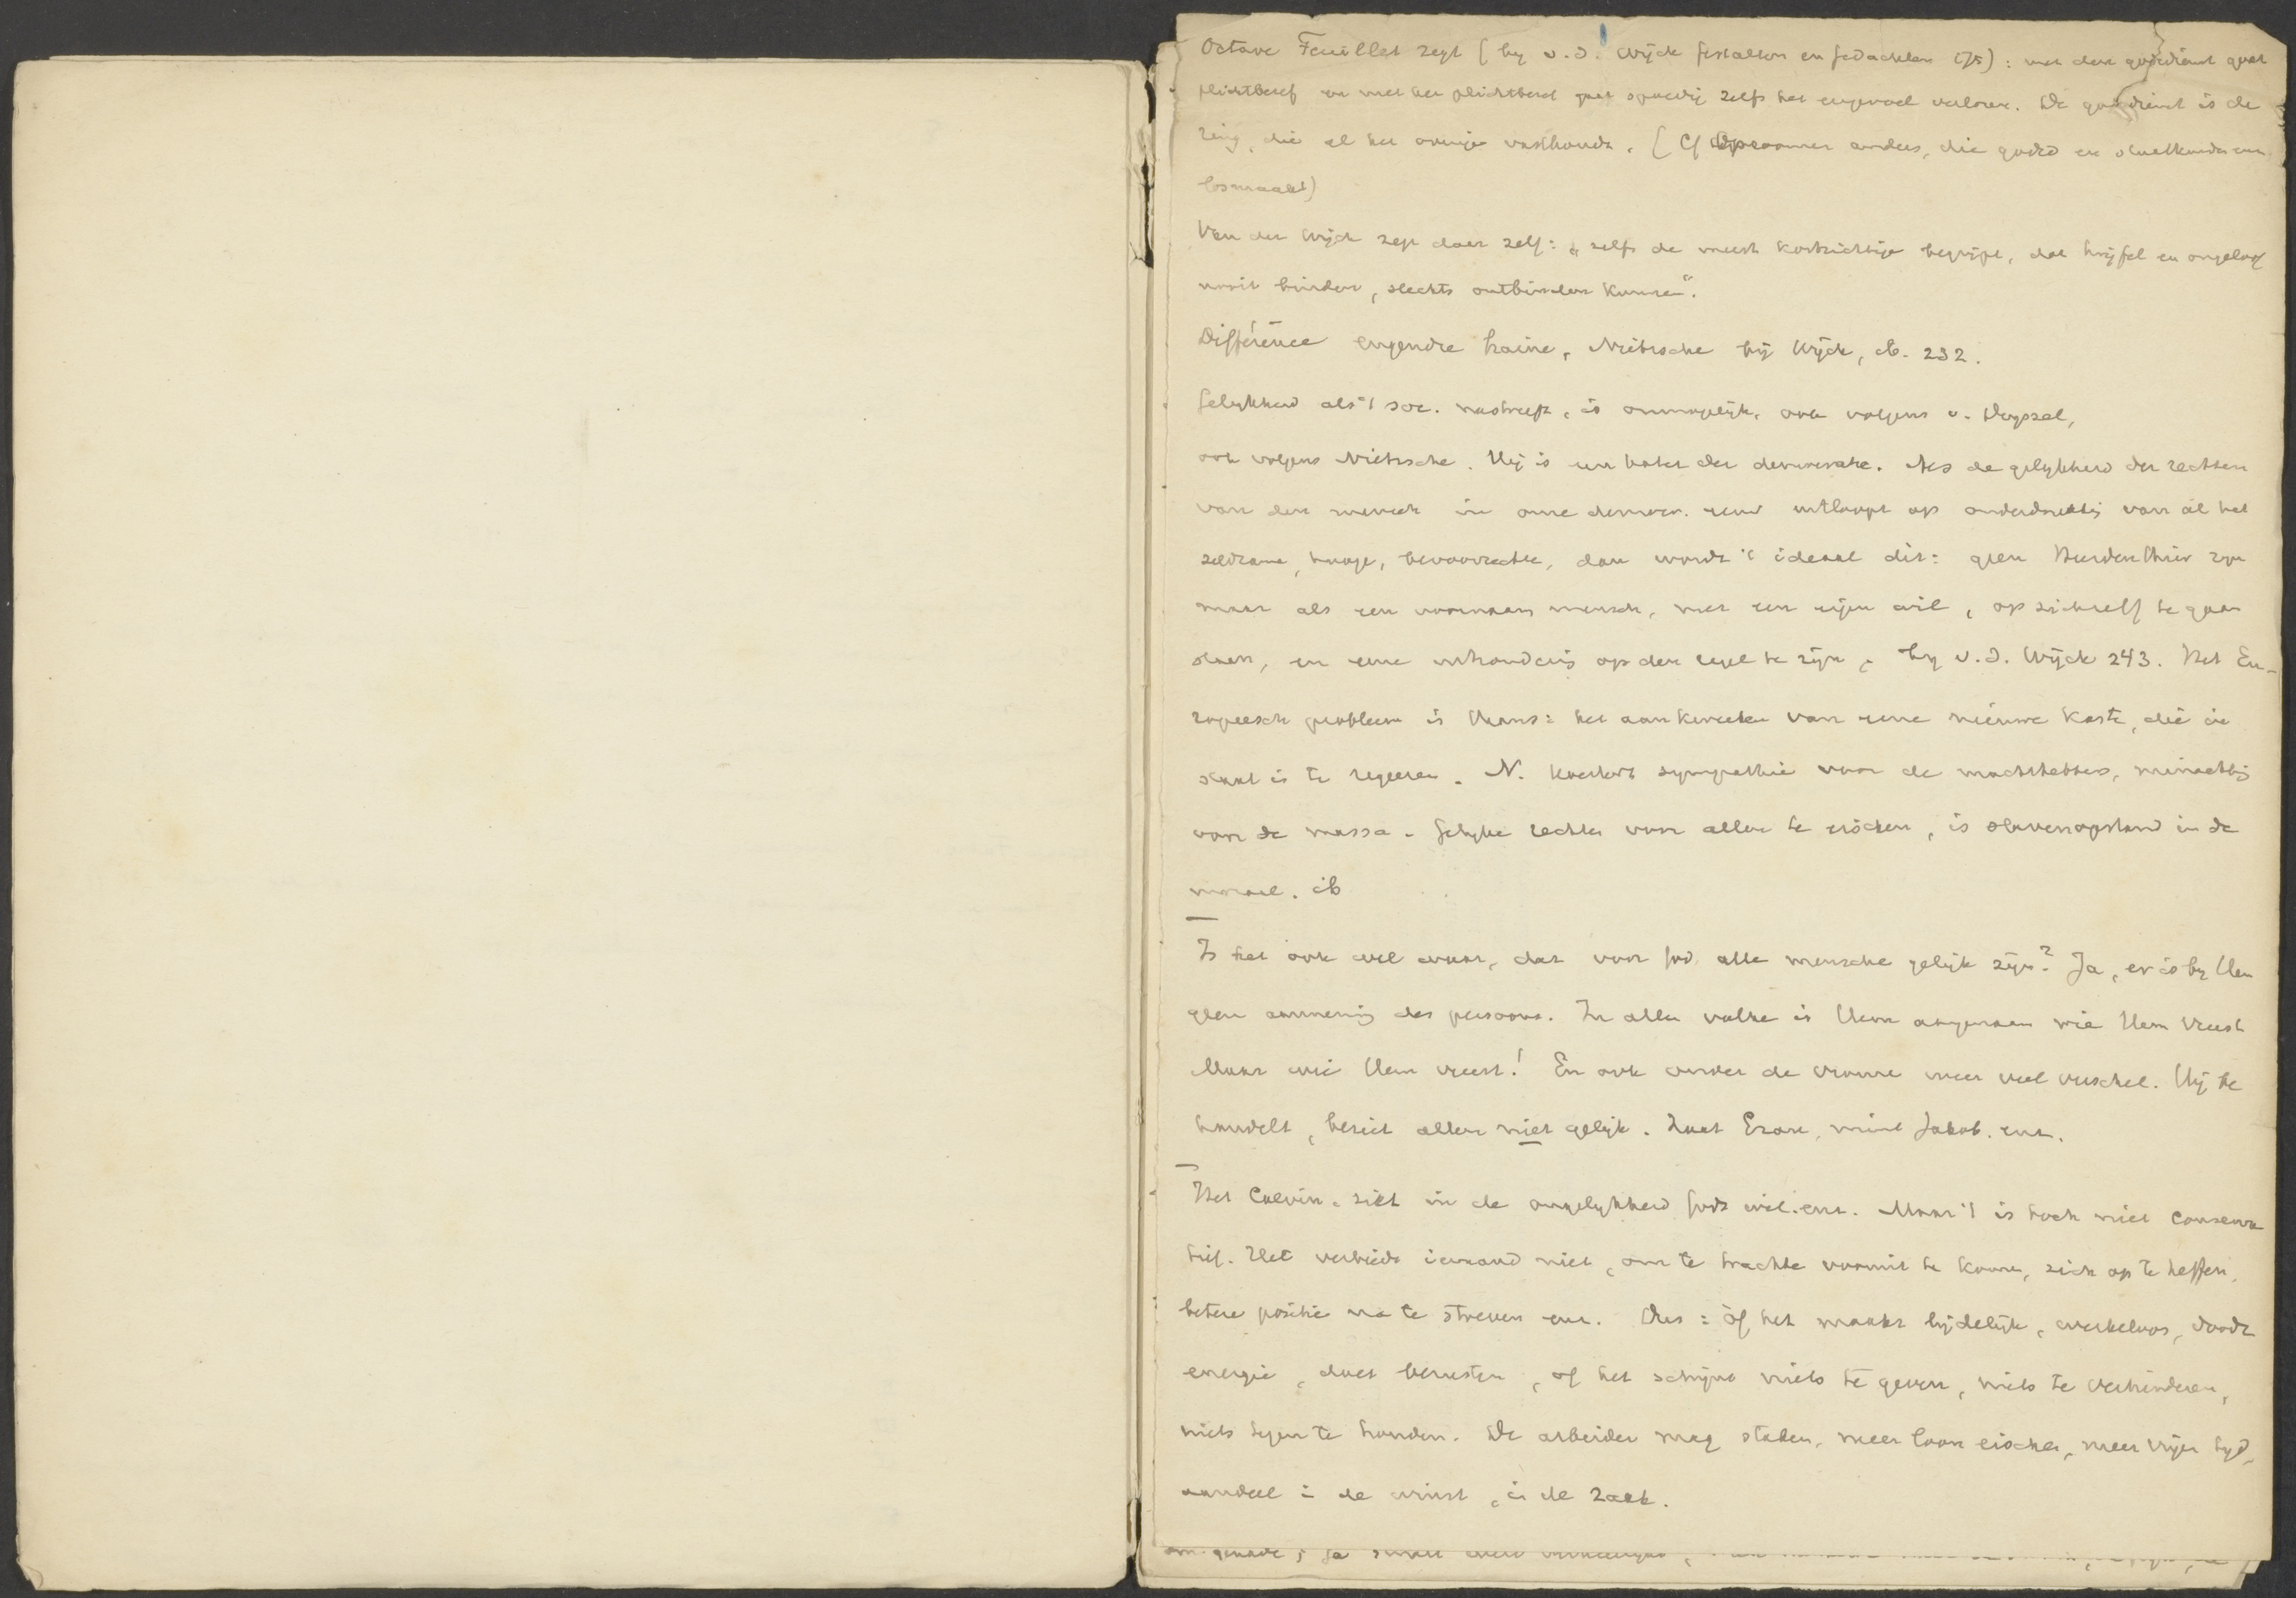 Octave Feuillet zegt (by v.d. Wijck Gestalten en Gedachten 175): met den godsdienst gaat
plichtbesef en met het plichtbesef gaat spoedig zelfs het eergevoel verloren. De godsdienst is de
ring, die al het overige vasthoudt. (Cf Opzoomer anders, die godsd en zedelkunde
losmaakt)
Van der Wijck zegt daar zelf: „zelfs de meest kortzichtige begrijpt, dat twijfel en ongeloof
nooit binden, slechts ontbinden kunnen“.
Différence engendre haine, Nietzsche bij Wijck, ib. 232.
Gelijkheid als 't soc. nastreeft, is onmogelijk, ook volgens v. Deyssel,
ook volgens Nietzsche. Hij is een hater der democratie. Als de gelykheid der rechten
van den mensch in onze democr. eeuw uitloopt op onderdrukkig van al het
zeldzame, hooge, bevoorrechte, dan wordt 't ideaal dit: geen Heerdenthier zyn
maar als een voornaam mensch, met een eigen wil, op zichzelf te gaan
staan, en eene uitzonderig op den regel te zijn, by v.d. Wijck 243. Het Eu-
ropeesch probleem is thans: het aankweeken van eene nieuwe kaste, die in
staat is te regeeren. N. koestert sympathie voor de machthebbers, minachtig
voor de massa. Gelyke rechten voor allen te eischen, is slavenopstand in de
moraal. ib
Is het ook wel waar, dat voor God alle mensche gelijk zijn? Ja, er is by Hem
geen aanneming des persoons. In alle volke is Hem aangenaam wie Hem vreest
Maar wie Hem vreest! En ook onder de vrome weer veel verschel. Hij be
handelt, beziet allen niet gelijk. Haat Ezau, mint Jakob. enz.
Het Calvin. ziet in de ongelykheid Gods wil. enz. Maar 't is toch niet conserva
tief. Het verbiedt iemand niet, om te trachte vooruit te komen, zich op te heffen,
betere positie na te streven enz. Dus: òf het maakt lijdelijk, werkeloos, doodt
energie, doet berusten, of het schijnt niets te geven, niets te verhinderen,
niets tegen te houden. De arbeider mag staken, meer loon eischen, meer vrijen tyd,
aandeel i de winst, in de zaak.